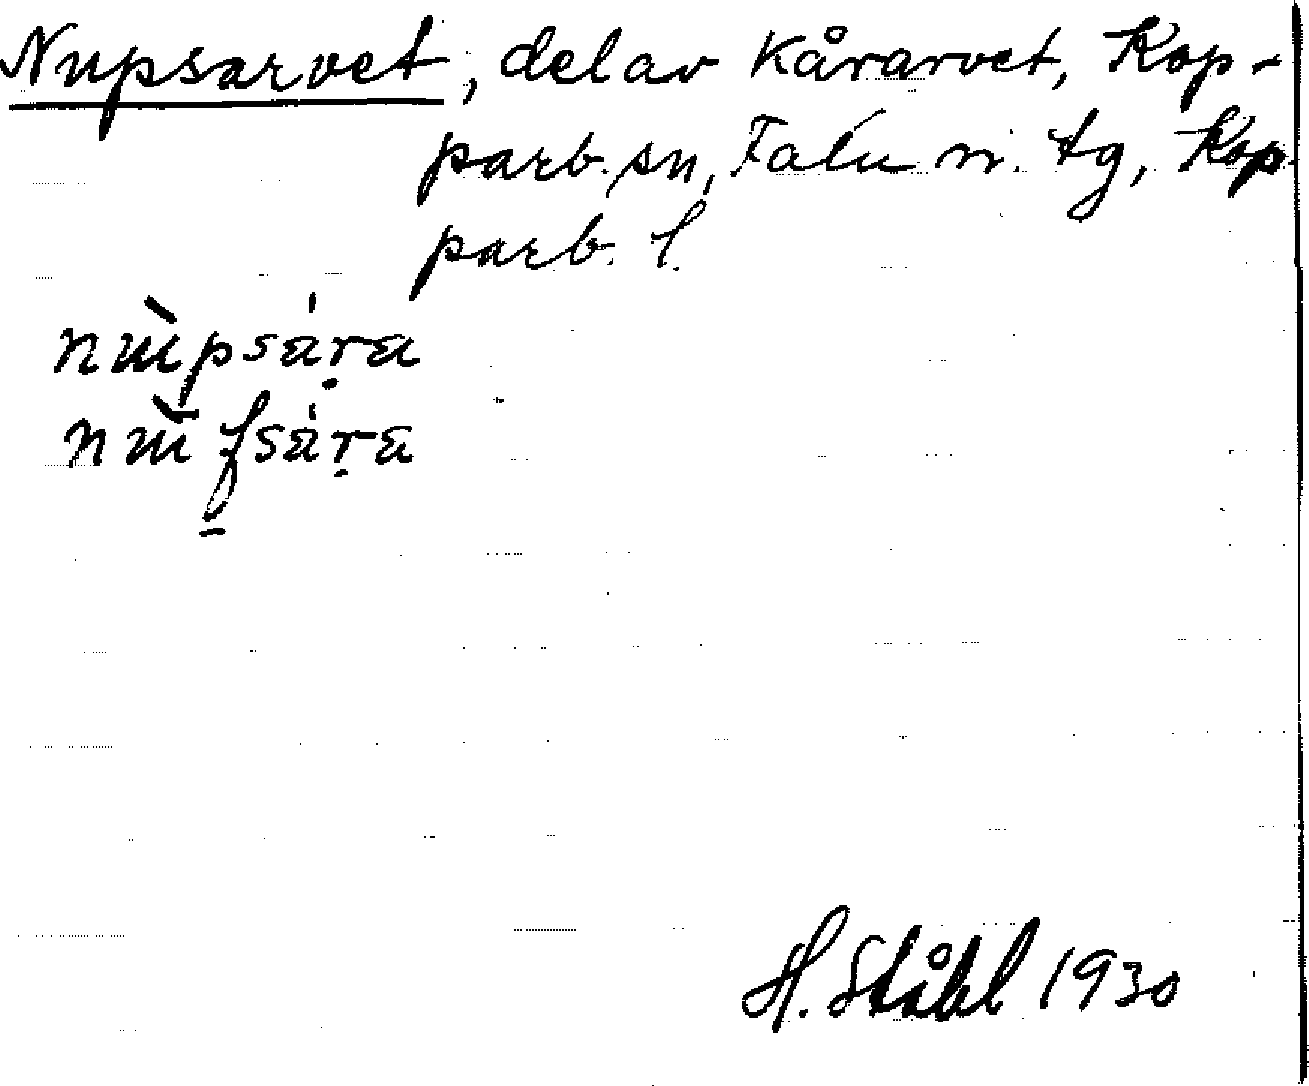 Nupsarvet, del av Kårarvet, Kop-
parb. sn, Falu n. tg, Kop
parb. l.
nùpsárа
nùfsárа
H. Ståhl 1930